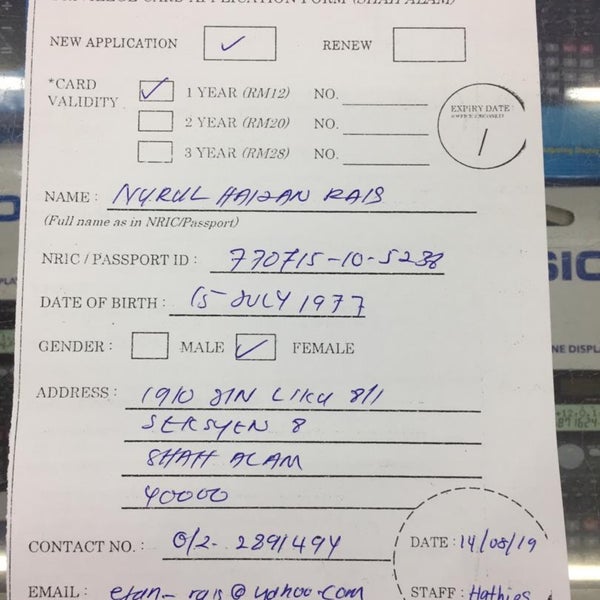 PRIVILEGE CARD APPLICATION FORM (SHAH ALAM)
NEW APPLICATION RENEW
*CARD VALIDITY
1 YEAR (RM12) NO.
2 YEAR (RM20) NO.
3 YEAR (RM28) NO.
EXPIRY DATE:
/
NAME: NURUL HAIZAN RAIS
(Full name as in NRIC/Passport)
NRIC / PASSPORT ID: 770715-10-5238
DATE OF BIRTH: 15 JULY 1977
GENDER: MALE FEMALE
ADDRESS: 1910 JLN LIKU 8/1
SEKSYEN 8
SHAH ALAM
40000
CONTACT NO.: 012-2891494
DATE: 14/08/19
EMAIL: etan_rais@yahoo.com
STAFF: